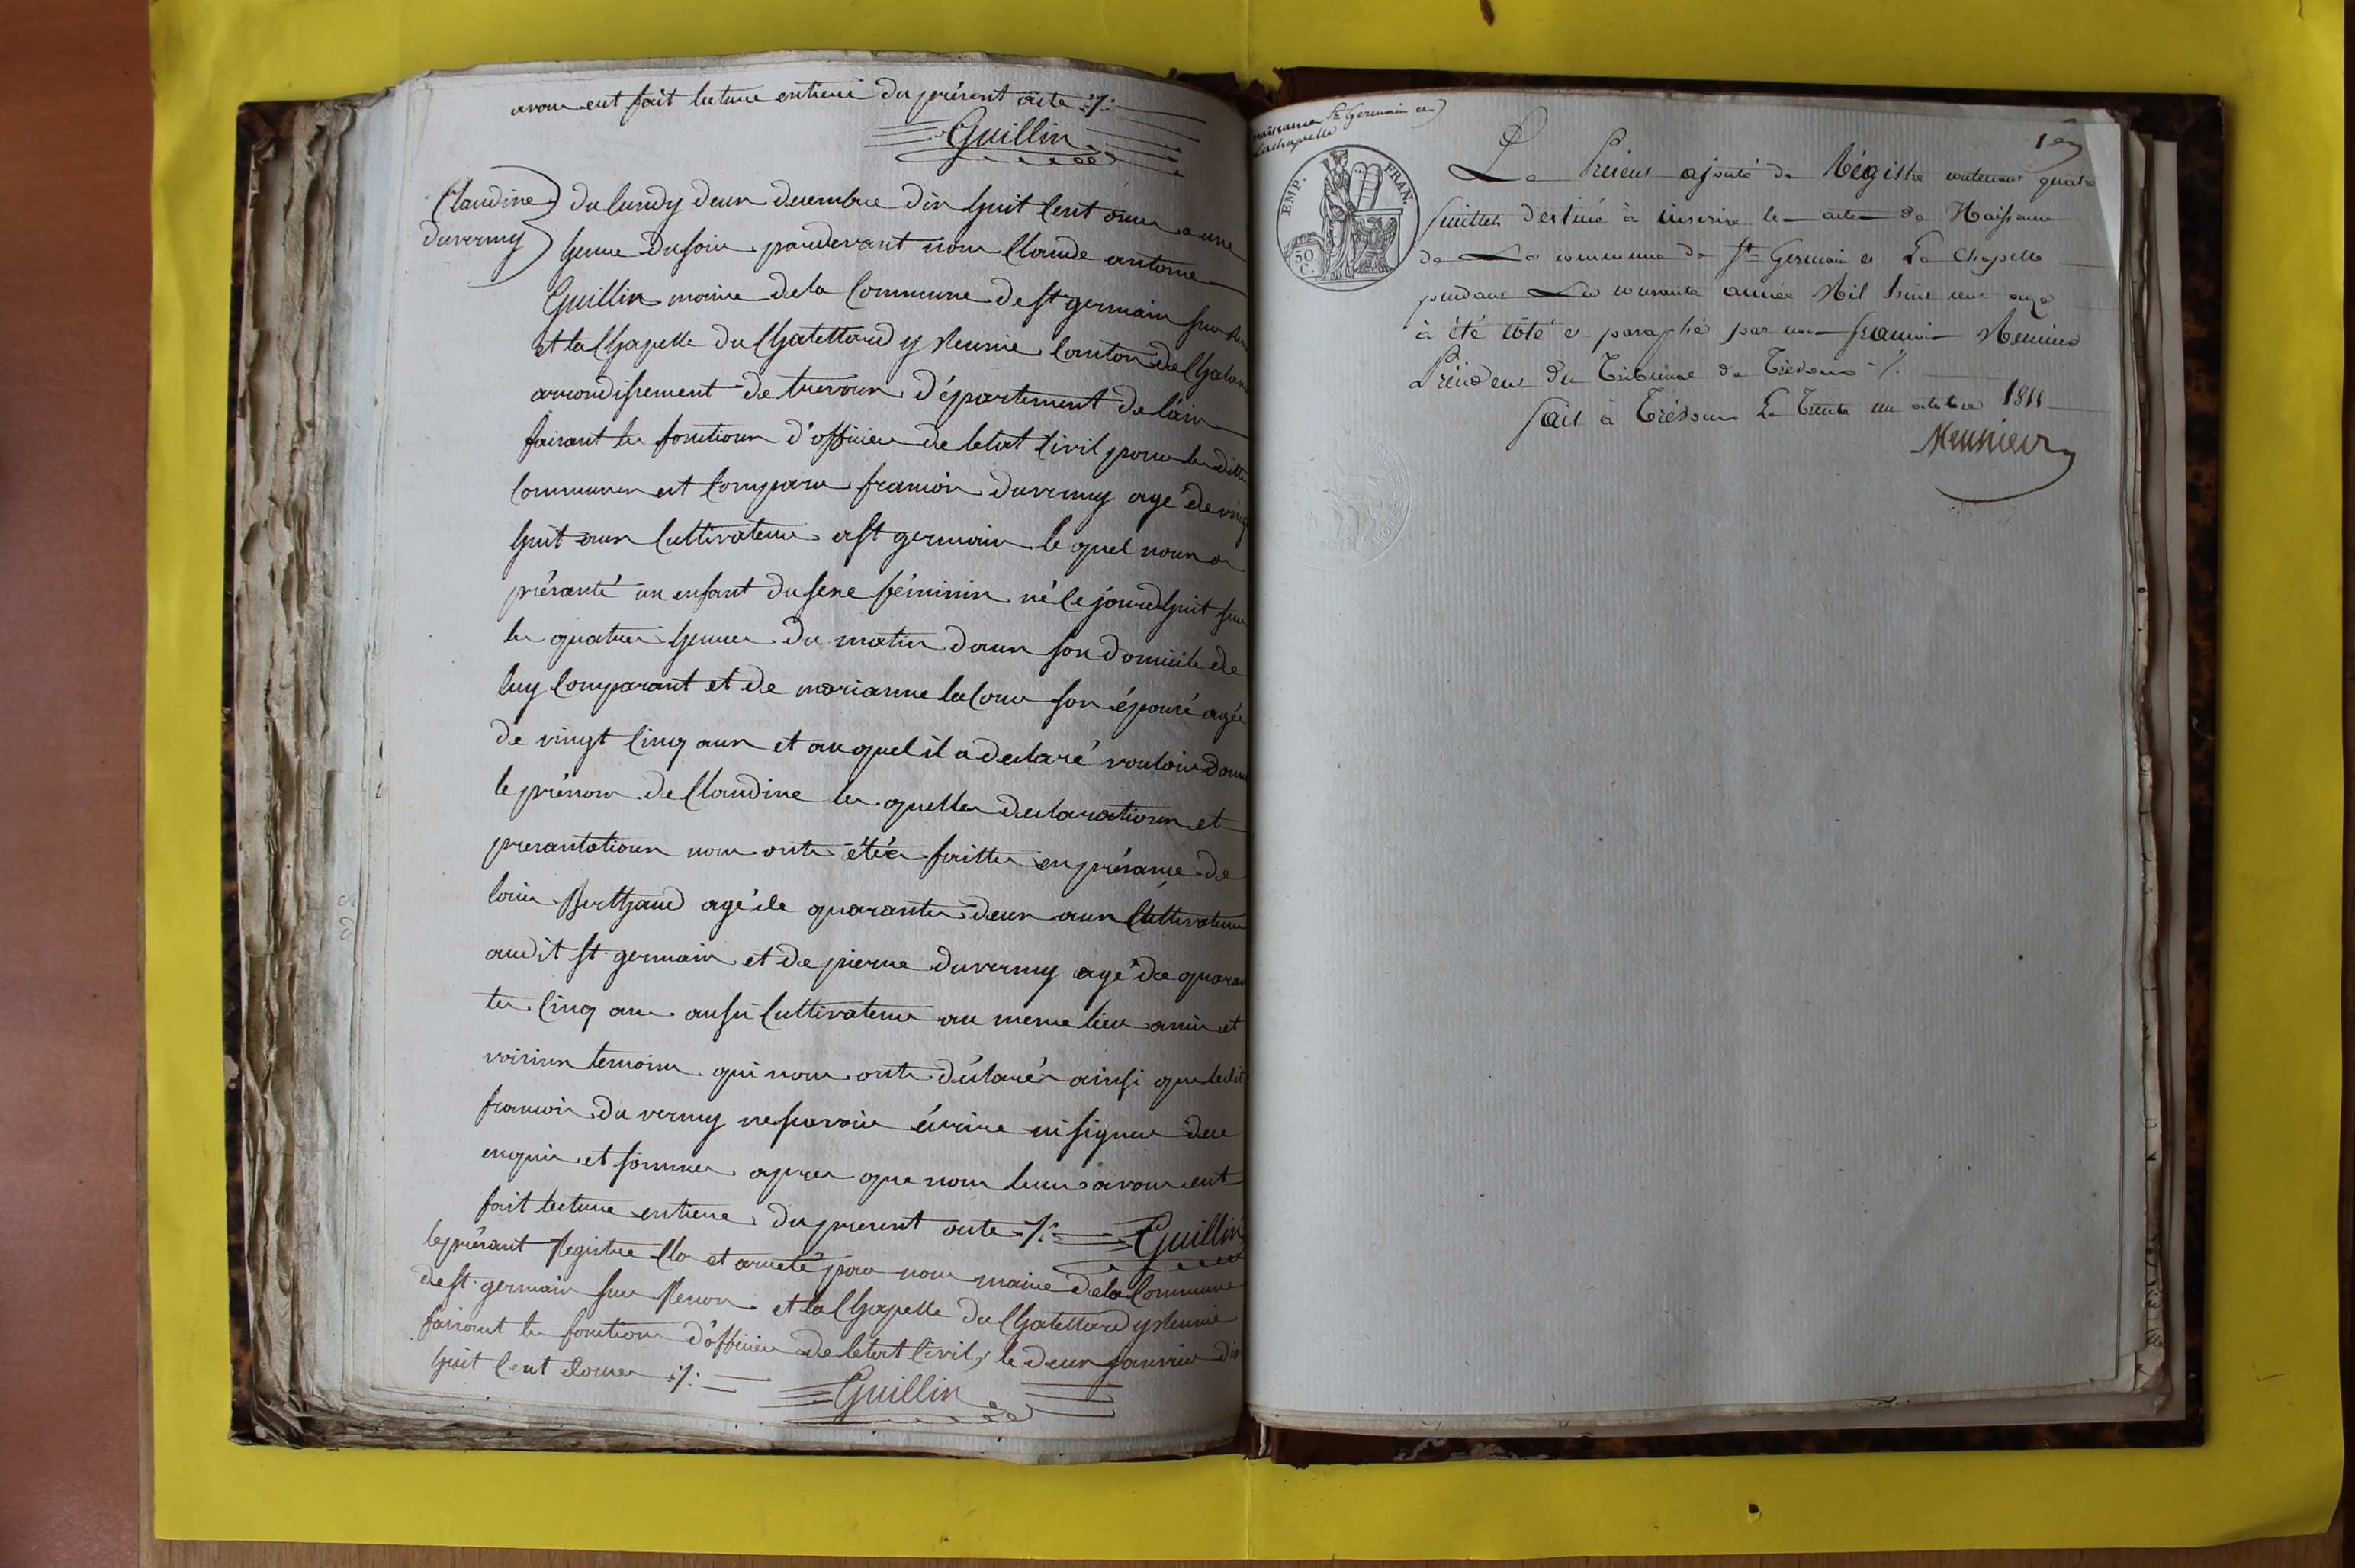 avons ent fait lecture entiere du présent acte ·/·
Guillin
Claudine
duverny
du lundy deux decembre dix huit cent onze a une
heure du soir pardevant nous Claude antoine
Guillin maire de la Commune de st germain sur
et la Chapelle du Chatellard y reunie Canton de
arrondissement de trevoux département de lain
faisant les fonctions d'officier de letat Civil pour les dittes
Communes est Comparu francois duverny agé de
huit ans Cultivateur a st germain le quel nous a
présanté un enfant du sexe féminin né le jourdhuit sur
les quatres heures du matin dans son domicile de
luy Comparant et de marianne lacour son épouse agée
de vingt Cinq ans et auquel il a déclaré vouloir
le prénom de Claudine les quelles declarations et
presantations nous onts étées faittes en présance de
louis Berthaud agé de quarantes deux ans Cultivateur
audit st germain et de pierre duverny agé de quaran
tes Cinq ans aussi Cultivateur au meme lieu amis et
voisins temoins qui nous onts déclarés ainsi que
francois du verny ne savoir écrire ni signer de ce
enquis et sommes apres que nous leurs avons ent
fait lecture entiere du present acte ·/· Guillin
le présant Registre Clo et arreté par nous maire de la Commune
de st germain sur Renon et la Chapelle du Chatellard y reunie
faisant les fonctions d'officier de letat Civil, le deux janvier dix
huit Cent douzes ·/·
Guillin
naissances St Germain et
lachapelle
1er
EMP. FRAN.
50
C.
Le Présent ajouté de Régistre contenant quatre
feuillets destiné à inscrire les actes de Naissance
de La commune de St Germain et La Chapelle
pendant La courante année Mil huit cent onze
à été côté et paraphé par nous françois Meunier
Président du Tribunal de Trévoux ·/·
fait à Trévoux Le Trente un octobre 1811
Meunier